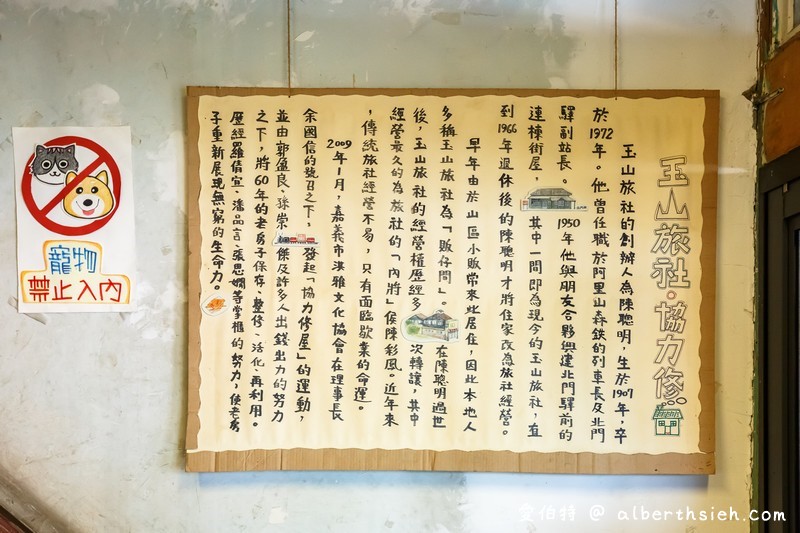 玉山旅社·協力修
玉山旅社的創辦人為陳聰明，生於1907年，卒
於1972年。他曾任職於阿里山森鉄的列車長及北門
驛副站長。1950年他與朋友合夥興建北門驛前的
連棟街屋，其中一間即為現今的玉山旅社，直
到1966年退休後的陳聰明才將住家改為旅社經營。
早年由於山區小販常來此居住，因此本地人
多稱玉山旅社為「販仔間」。在陳聰明過世
後，玉山旅社的經營權歷經多次轉讓，其中
經營最久的為旅社的「內將」侯陳彩鳳。近年來
，傳統旅社經營不易，只有面臨歇業的命運。
2009年1月，嘉義市洪雅文化協會在理事長
余國信的號召之下，發起「協力修屋」的運動，
並由郭盈良、孫崇傑及許多人出錢出力的努力
之下，將60年的老房子保存、整修、活化、再利用。
歷經羅倩宜、潘品言、張思嫺等掌櫃的努力，使老房
子重新展現無窮的生命力。
寵物
禁止入內
愛伯特 @ alberthsieh.com